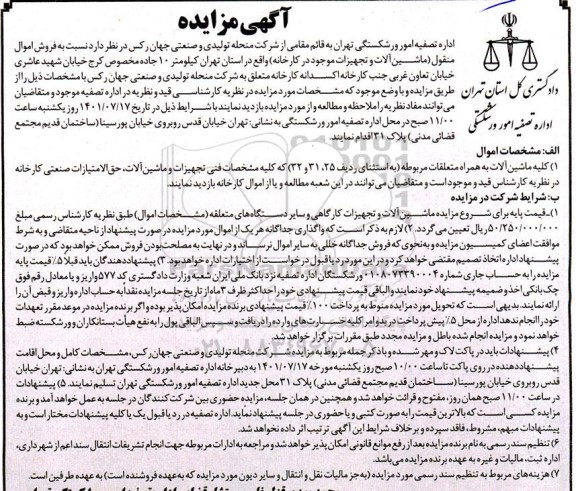 آگهی مزایده
دادگستری کل استان تهران
اداره تصفیه امور ورشکستگی
اداره تصفیه امور ورشکستگی تهران به قائم مقامی از شرکت منحله تولیدی و صنعتی جهان رکس در نظر دارد نسبت به فروش اموال
منقول (ماشین آلات و تجهیزات موجود در کارخانه) واقع در استان تهران کیلومتر ۱۰ جاده مخصوص کرج خیابان شهید عاشری
خیابان تعاون غربی جنب کارخانه اکسدانه کارخانه متعلق به شرکت منحله تولیدی و صنعتی جهان رکس با مشخصات ذیل را از
طریق مزایده و با وضع موجود که مشخصات مورد مزایده در نظریه کارشناسی قید و نظریه در اداره تصفیه موجود و متقاضیان
می توانند مفاد نظریه را ملاحظه و مطالعه و از مورد مزایده بازدید نمایند با شرایط ذیل در تاریخ ۱۴۰۱/۰۷/۱۷ روز یکشنبه ساعت
۱۱/۰۰ صبح در محل اداره تصفیه امور ورشکستگی به نشانی: تهران خیابان قدس روبروی خیابان پورسینا (ساختمان قدیم مجتمع
قضائی مدنی) پلاک ۳۱ اقدام نمایند.
الف: مشخصات اموال
۱) کلیه ماشین آلات به همراه متعلقات مربوطه (به استثنای ردیف ۲۵، ۳۱ و ۳۲) که کلیه مشخصات فنی تجهیزات و ماشین آلات، حق الامتیازات صنعتی کارخانه
در نظریه کارشناس قید و موجود است و متقاضیان می توانند در این شعبه مطالعه و یا از اموال کارخانه بازدید نمایند.
ب: شرایط شرکت در مزایده
۱) قیمت پایه برای شروع مزایده ماشین آلات و تجهیزات کارگاهی و سایر دستگاه های متعلقه (مشخصات اموال) طبق نظریه کارشناس رسمی مبلغ
۵۰/۲۵۰/۰۰۰/۰۰۰ ریال تعیین می گردد. ۲) لازم به ذکر است که واگذاری جداگانه هر یک از اموال مورد مزایده در صورت پیشنهاد از ناحیه متقاضی و به شرط
موافقت اعضای کمیسیون مزایده و به نحوی که فروش جداگانه خللی به سایر اموال نرساند و در نهایت به مصلحت بودن فروش ممکن خواهد بود که در صورت
پیشنهاد اداره اتخاذ تصمیم مقتضی خواهد کرد و در این مورد رد یا قبول درخواست از اختیارات اداره خواهد بود. ۳) پیشنهاد دهندگان باید قبلا ۵٪ قیمت پایه
مزایده را به حساب جاری شماره ۰۱۰۸۰۷۳۳۹۰۰۰۴ ورشکستگان اداره تصفیه نزد بانک ملی ایران شعبه وزارت دادگستری کد ۵۷۷ واریز و یا معادل رقم فوق
چک بانکی اخذ و ضمیمه پیشنهاد خود نمایند و الباقی قیمت پیشنهادی خود را حداکثر ظرف ۳ ماه از تاریخ جلسه مزایده نقدا به حساب اداره واریز و قبض آن را
ارائه نمایند. بدیهی است که تحویل مورد مزایده منوط به پرداخت ۱۰۰٪ قیمت پیشنهادی برنده مزایده امکان پذیر بوده و اگر برنده مزایده در موعد مقرر تعهدات
خود را انجام ندهد اداره از محل ۵٪ پیش پرداخت در بدو امر کلیه خسارت های وارده را دریافت و سپس الباقی پول را به نفع هیأت بستانکاران و ورشکسته ضبط
خواهد نمود و مزایده انجام شده باطل و مزایده مجدد طبق مقررات برگزار خواهد شد.
۴) پیشنهادات باید در پاکت لاک و مهر شده و با ذکر جمله مربوط به مزایده: شرکت منحله تولیدی و صنعتی جهان رکس، مشخصات کامل و محل اقامت
پیشنهاد دهنده در روی پاکت تا ساعت ۱۰/۰۰ صبح روز یکشنبه مورخه ۱۴۰۱/۰۷/۱۷ به دبیرخانه اداره تصفیه امور ورشکستگی تهران به نشانی: تهران خیابان
قدس روبروی خیابان پورسینا (ساختمان قدیم مجتمع قضائی مدنی) پلاک ۳۱ محل جدید اداره تصفیه امور ورشکستگی تهران تسلیم نمایند. ۵) پیشنهادات
در ساعت ۱۱/۰۰ صبح همان روز، مفتوح و قرائت خواهد شد و همچنین در همان جلسه، مزایده حضوری بین شرکت کنندگان در جلسه به عمل خواهد آمد و برنده
مزایده کسی است که بالاترین قیمت را به صورت کتبی و یا حضوری در جلسه پیشنهاد نماید. اداره تصفیه در رد یا قبول یک یا کلیه پیشنهادات مختار است و به
پیشنهادات مبهم، مشروط، فاقد سپرده و بر خلاف شرایط این آگهی ترتیب اثر داده نخواهد شد.
۶) تنظیم سند رسمی به نام برنده مزایده بعد از رفع موانع قانونی امکان پذیر خواهد شد و مراجعه به ادارات مربوطه جهت انجام تشریفات انتقال سند اعم از شهرداری،
اداره ثبت، مالیات و غیره به عهده برنده مزایده می باشد.
۷) هزینه های مربوط به تنظیم سند رسمی مورد مزایده (به جز مالیات نقل و انتقال و سایر دیون مورد مزایده که به عهده فروشنده است) به عهده طرفین است.